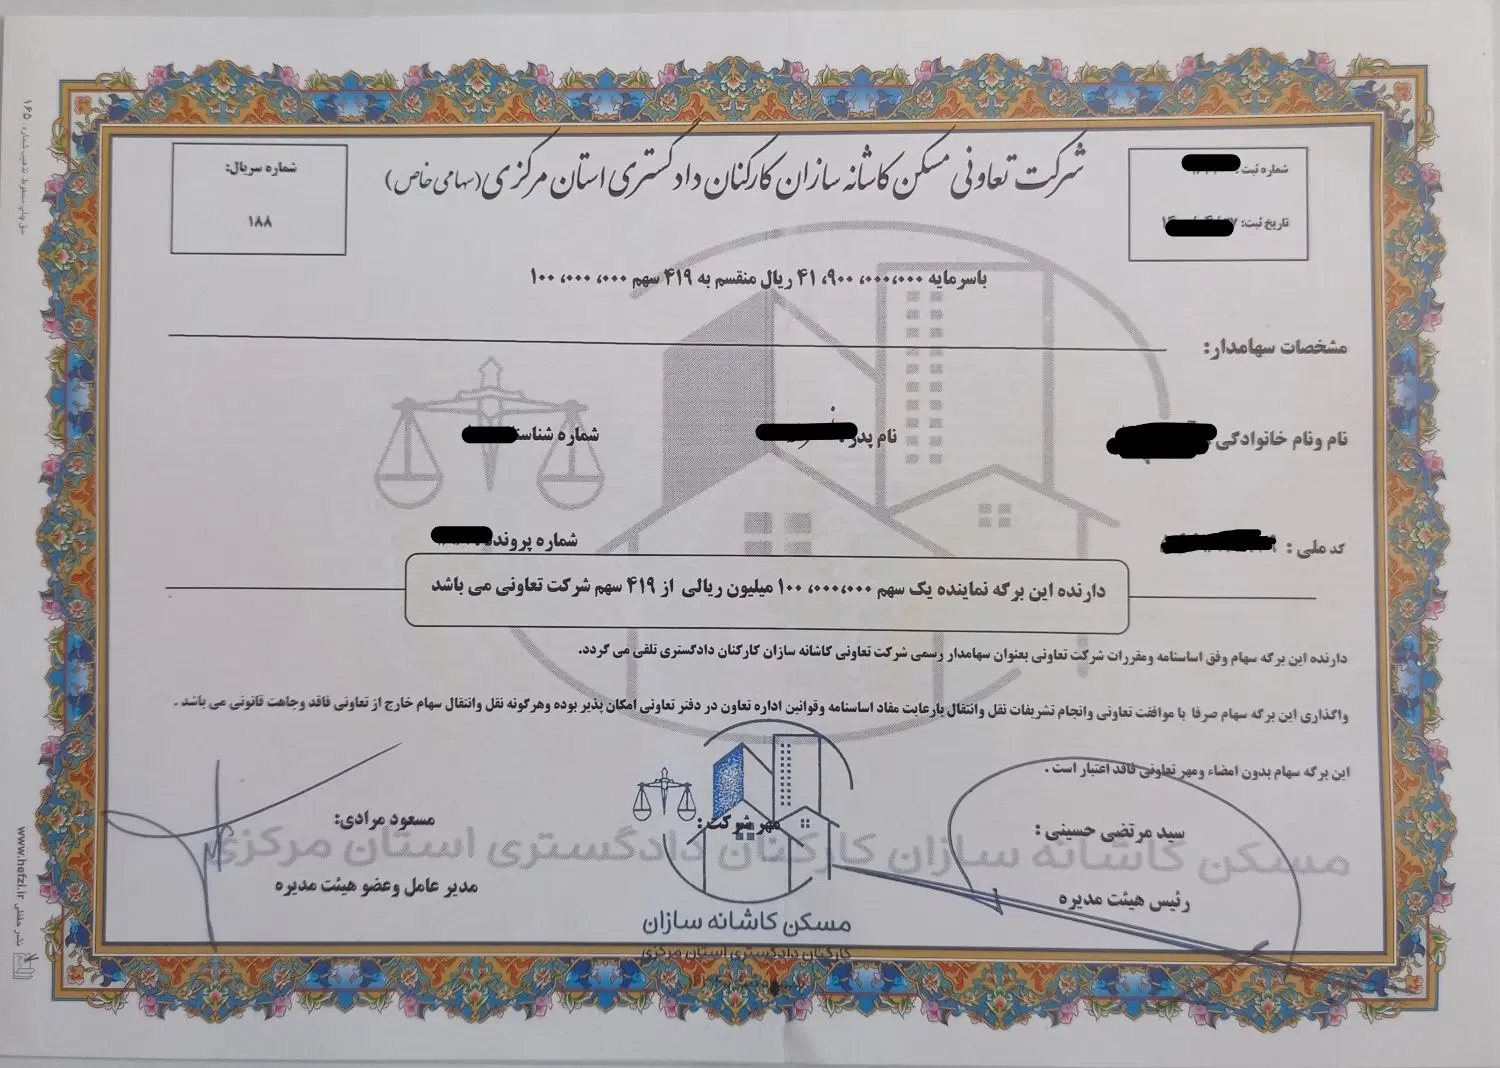 شرکت تعاونی مسکن کاشانه سازان کارکنان دادگستری استان مرکزی (سهامی خاص)
شماره ثبت:
تاریخ ثبت:
شماره سریال:
۱۸۸
باسرمایه ۴۱،۹۰۰،۰۰۰،۰۰۰ ریال منقسم به ۴۱۹ سهم ۱۰۰،۰۰۰،۰۰۰
مشخصات سهامدار:
نام ونام خانوادگی
نام پدر
شماره
کد ملی :
شماره پرونده
دارنده این برگه نماینده یک سهم ۱۰۰،۰۰۰،۰۰۰ میلیون ریالی از ۴۱۹ سهم شرکت تعاونی می باشد
دارنده این برگه سهام وفق اساسنامه ومقررات شرکت تعاونی بعنوان سهامدار رسمی شرکت تعاونی کاشانه سازان کارکنان دادگستری تلقی می گردد.
واگذاری این برگه سهام صرفا با موافقت تعاونی وانجام تشریفات نقل وانتقال بارعایت مفاد اساسنامه وقوانین اداره تعاون در دفتر تعاونی امکان پذیر بوده وهرگونه نقل وانتقال سهام خارج از تعاونی فاقد وجاهت قانونی می باشد .
این برگه سهام بدون امضاء ومهر تعاونی فاقد اعتبار است .
سید مرتضی حسینی :
رئیس هیئت مدیره
مهر شرکت :
مسعود مرادی:
مدیر عامل وعضو هیئت مدیره
مسکن کاشانه سازان کارکنان دادگستری استان مرکزی
مسکن کاشانه سازان
کارکنان دادگستری استان مرکزی
حق چاپ محفوظ. تذهیب شماره ۱۶۵
www.hefzi.ir نشر حفظی